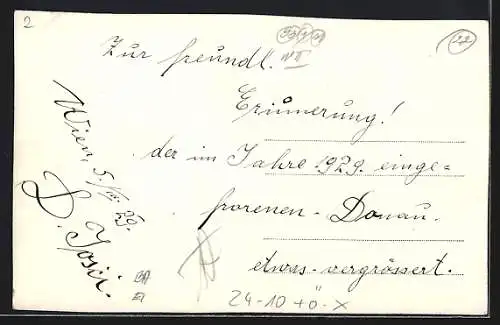 2
22
Zur freundl.
Erinnerung!
der im Jahre 1929. einge-
frorenen - Donau.
etwas vergrössert.
Wien, 5./VII. 29.
D. Josii.
24-10 +ö-X